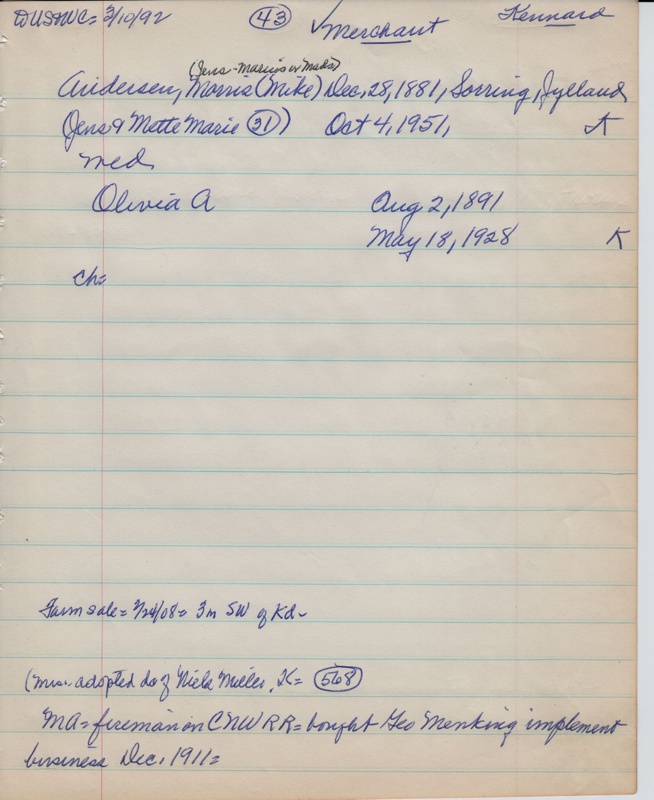 3/10/92 (43) ✓Merchant Kennard
(Jens-Marius or Mads)
Andersen, Morris (Mike) Dec, 28, 1881, Sorring, Jylland
(Jens & Mette Marie (31)) Oct 4, 1951, K
med
Olivia A Aug 2, 1891
May 18, 1928 K
ch=
Farm sale = 2/24/08 = 3m SW of Kd-
(mrs. adopted da of Niels Miller, K= (568)
MA = fireman on CNW RR = bought Geo Menking implement
business Dec. 1911=